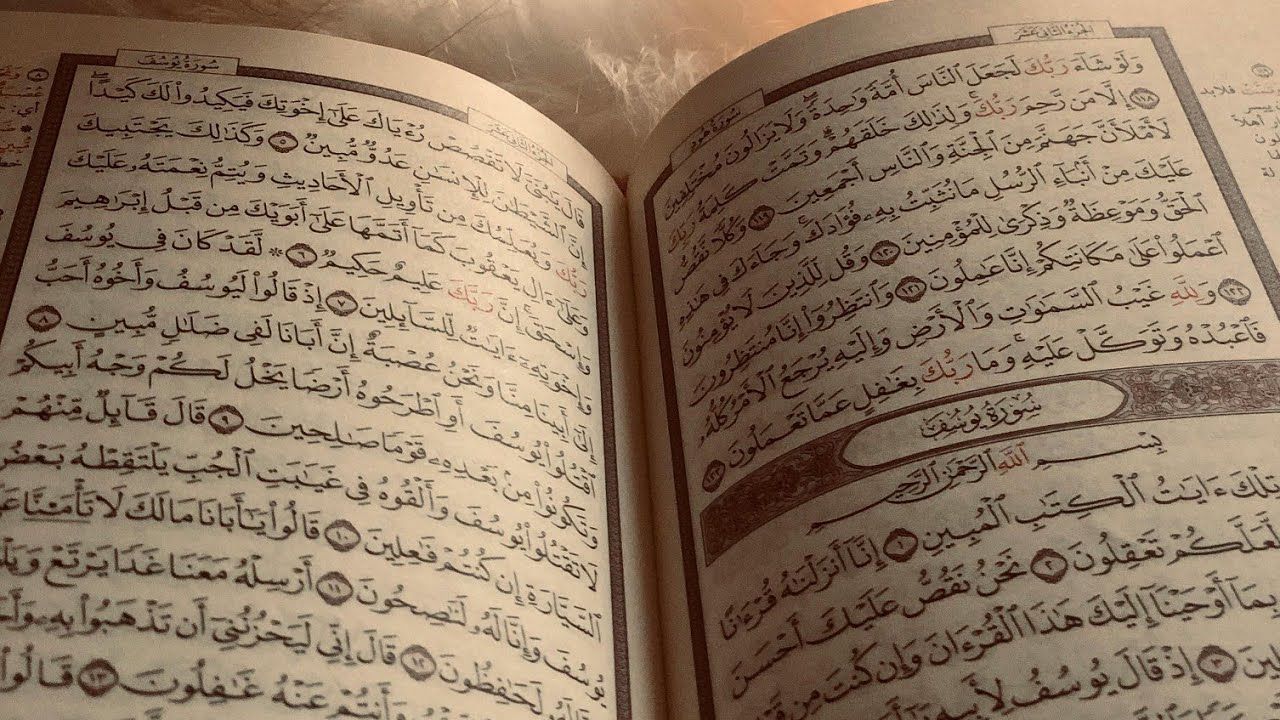 الجزء الثاني عشر
سورة هود
وَلَوْ شَآءَ رَبُّكَ لَجَعَلَ ٱلنَّاسَ أُمَّةً وَٰحِدَةً ۖ وَلَا يَزَالُونَ مُخْتَلِفِينَ
١١٨ إِلَّا مَن رَّحِمَ رَبُّكَ ۚ وَلِذَٰلِكَ خَلَقَهُمْ ۗ وَتَمَّتْ كَلِمَةُ رَبِّكَ
لَأَمْلَأَنَّ جَهَنَّمَ مِنَ ٱلْجِنَّةِ وَٱلنَّاسِ أَجْمَعِينَ ١١٩ وَكُلًّا نَّقُصُّ
عَلَيْكَ مِنْ أَنۢبَآءِ ٱلرُّسُلِ مَا نُثَبِّتُ بِهِۦ فُؤَادَكَ ۚ وَجَآءَكَ فِى هَٰذِهِ
ٱلْحَقُّ وَمَوْعِظَةٌ وَذِكْرَىٰ لِلْمُؤْمِنِينَ ١٢٠ وَقُل لِّلَّذِينَ لَا يُؤْمِنُونَ
ٱعْمَلُوا۟ عَلَىٰ مَكَانَتِكُمْ إِنَّا عَٰمِلُونَ ١٢١ وَٱنتَظِرُوٓا۟ إِنَّا مُنتَظِرُونَ
١٢٢ وَلِلَّهِ غَيْبُ ٱلسَّمَٰوَٰتِ وَٱلْأَرْضِ وَإِلَيْهِ يُرْجَعُ ٱلْأَمْرُ كُلُّهُۥ
فَٱعْبُدْهُ وَتَوَكَّلْ عَلَيْهِ ۚ وَمَا رَبُّكَ بِغَٰفِلٍ عَمَّا تَعْمَلُونَ ١٢٣
سورة يوسف
بِسْمِ ٱللَّهِ ٱلرَّحْمَٰنِ ٱلرَّحِيمِ
تِلْكَ ءَايَٰتُ ٱلْكِتَٰبِ ٱلْمُبِينِ ١ إِنَّآ أَنزَلْنَٰهُ قُرْءَٰنًا
لَّعَلَّكُمْ تَعْقِلُونَ ٢ نَحْنُ نَقُصُّ عَلَيْكَ أَحْسَنَ
بِمَآ أَوْحَيْنَآ إِلَيْكَ هَٰذَا ٱلْقُرْءَانَ وَإِن كُنتَ مِن
٣ إِذْ قَالَ يُوسُفُ لِأَبِيهِ
سورة يوسف
الجزء الثاني عشر
قَالَ يَٰبُنَىَّ لَا تَقْصُصْ رُءْيَاكَ عَلَىٰٓ إِخْوَتِكَ فَيَكِيدُوا۟ لَكَ كَيْدًا ۖ
إِنَّ ٱلشَّيْطَٰنَ لِلْإِنسَٰنِ عَدُوٌّ مُّبِينٌ ٥ وَكَذَٰلِكَ يَجْتَبِيكَ
رَبُّكَ وَيُعَلِّمُكَ مِن تَأْوِيلِ ٱلْأَحَادِيثِ وَيُتِمُّ نِعْمَتَهُۥ عَلَيْكَ
وَعَلَىٰٓ ءَالِ يَعْقُوبَ كَمَآ أَتَمَّهَا عَلَىٰٓ أَبَوَيْكَ مِن قَبْلُ إِبْرَٰهِيمَ
وَإِسْحَٰقَ ۚ إِنَّ رَبَّكَ عَلِيمٌ حَكِيمٌ ٦ ۞ لَّقَدْ كَانَ فِى يُوسُفَ
وَإِخْوَتِهِۦٓ ءَايَٰتٌ لِّلسَّآئِلِينَ ٧ إِذْ قَالُوا۟ لَيُوسُفُ وَأَخُوهُ أَحَبُّ
إِلَىٰٓ أَبِينَا مِنَّا وَنَحْنُ عُصْبَةٌ إِنَّ أَبَانَا لَفِى ضَلَٰلٍ مُّبِينٍ ٨
ٱقْتُلُوا۟ يُوسُفَ أَوِ ٱطْرَحُوهُ أَرْضًا يَخْلُ لَكُمْ وَجْهُ أَبِيكُمْ
وَتَكُونُوا۟ مِنۢ بَعْدِهِۦ قَوْمًا صَٰلِحِينَ ٩ قَالَ قَآئِلٌ مِّنْهُمْ
لَا تَقْتُلُوا۟ يُوسُفَ وَأَلْقُوهُ فِى غَيَٰبَتِ ٱلْجُبِّ يَلْتَقِطْهُ بَعْضُ
ٱلسَّيَّارَةِ إِن كُنتُمْ فَٰعِلِينَ ١٠ قَالُوا۟ يَٰٓأَبَانَا مَا لَكَ لَا تَأْمَ۫نَّا
يُوسُفَ وَإِنَّا لَهُۥ لَنَٰصِحُونَ ١١ أَرْسِلْهُ مَعَنَا غَدًا يَرْتَعْ
لَحَٰفِظُونَ ١٢ قَالَ إِنِّى لَيَحْزُنُنِىٓ أَن تَذْهَبُوا۟ بِهِۦ
وَأَنتُمْ عَنْهُ غَٰفِلُونَ ١٣ قَالُوا۟